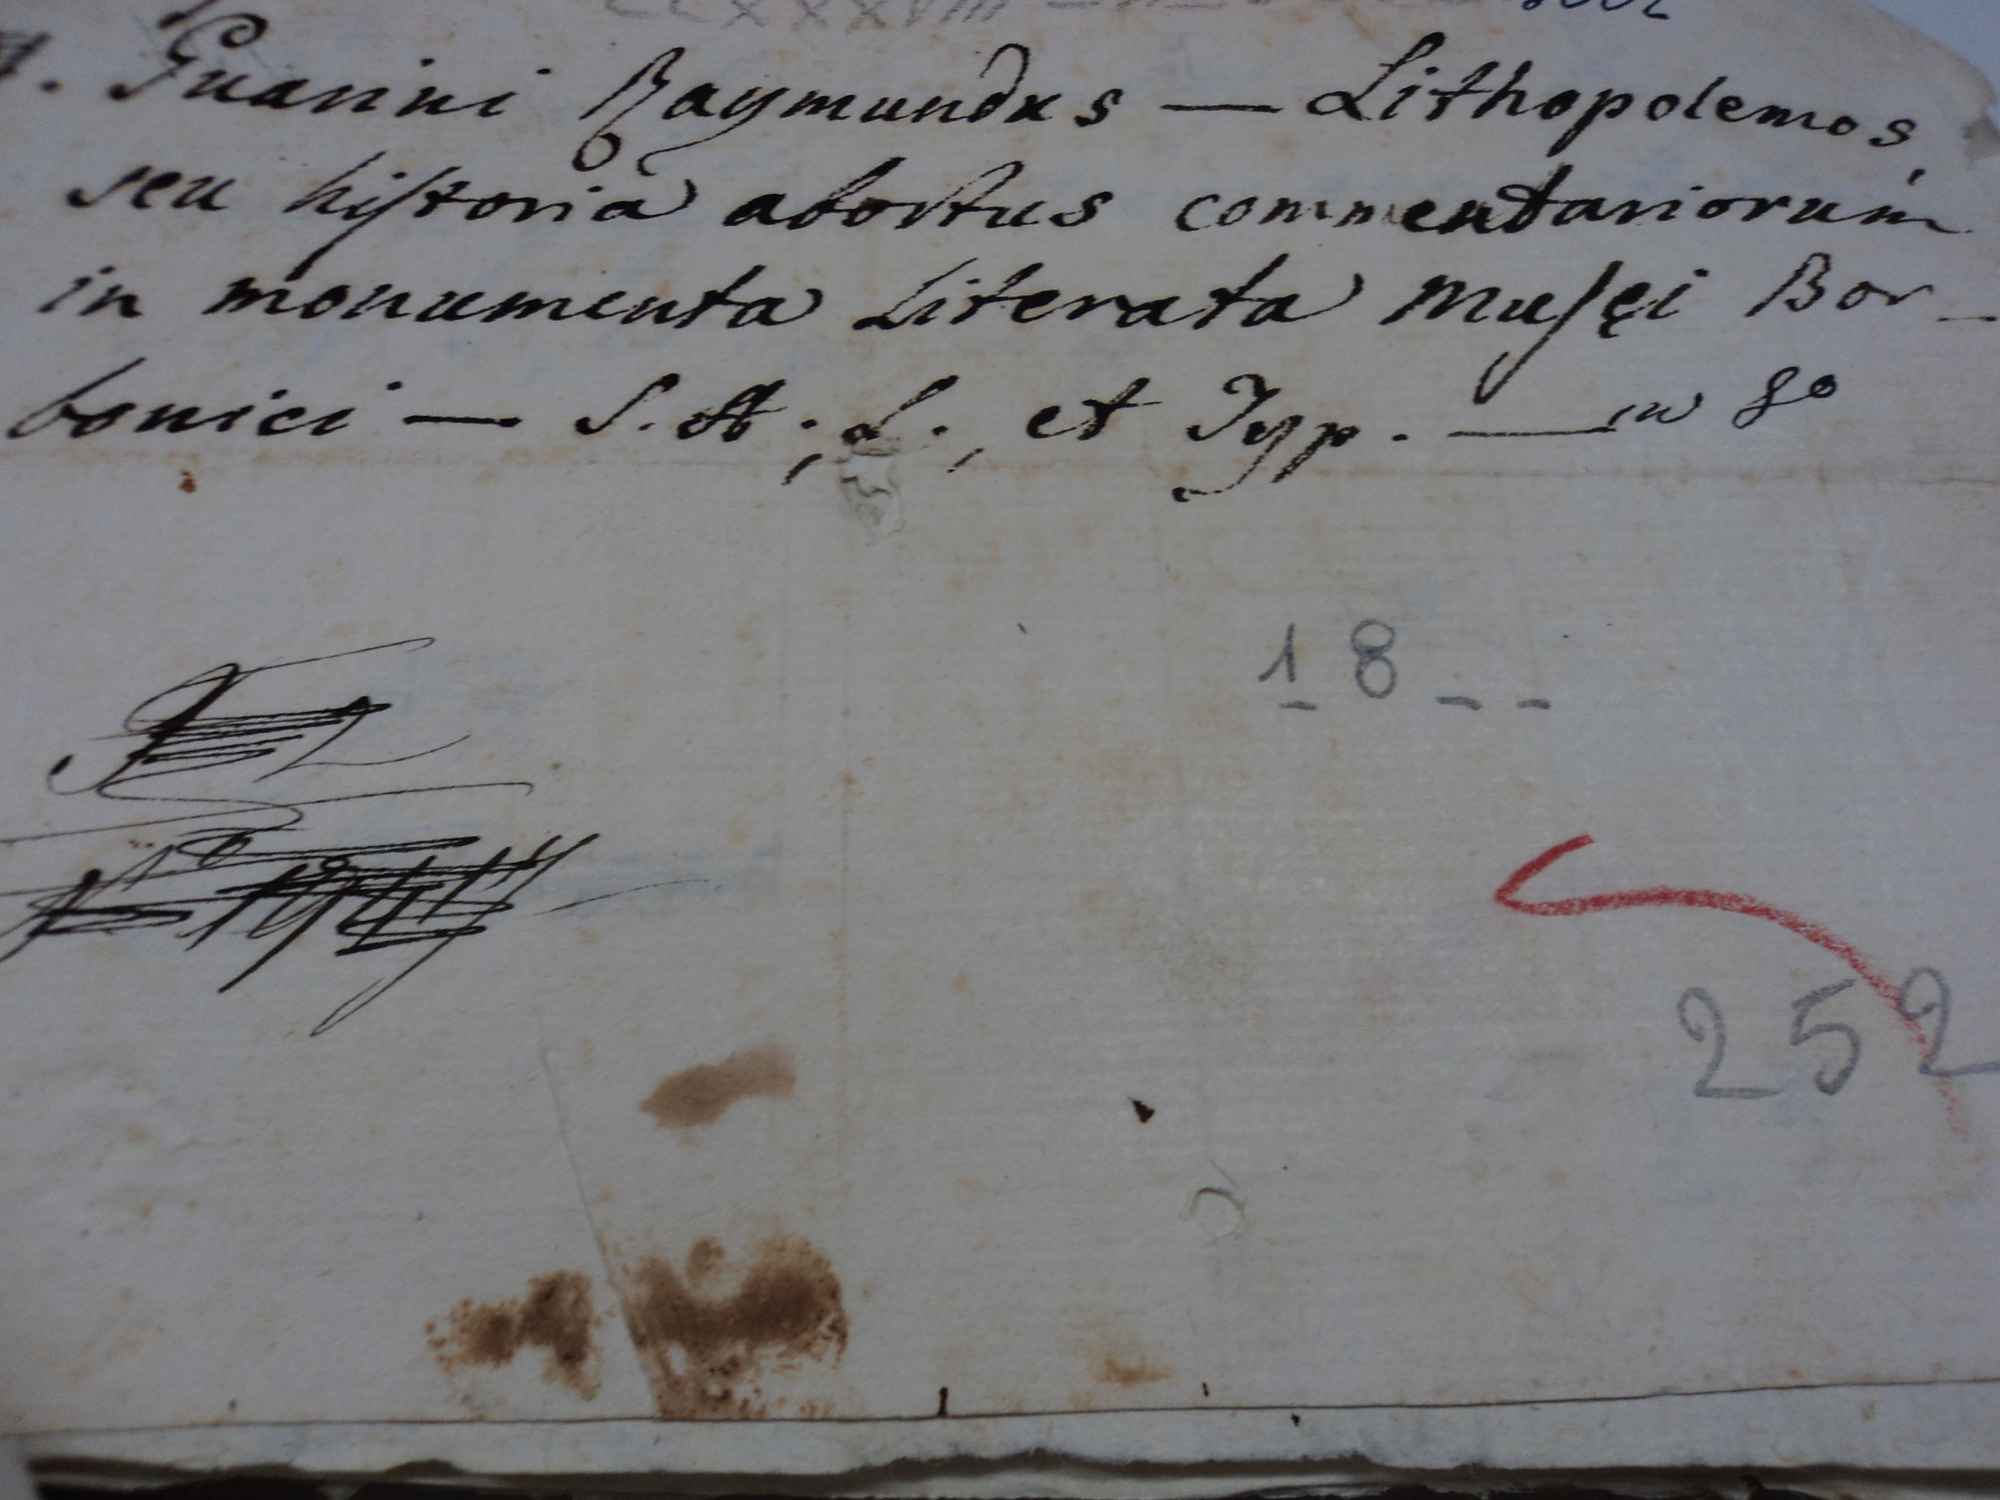 Guarini Raymundus — Lithopolemos,
seu historia abortus commentariorum
in monumenta Literata Musęi Bor-
bonici — S. A.; L., et Typ. — in 8º
18--
252